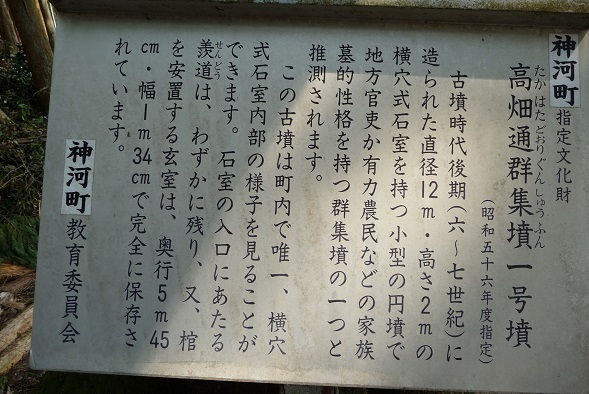 神河町指定文化財
たかはたどおりぐんしゅうふん
高畑通群集墳一号墳
(昭和五十六年度指定)
古墳時代後期(六〜七世紀)に
造られた直径12m・高さ2mの
横穴式石室を持つ小型の円墳で
地方官吏か有力農民などの家族
墓的性格を持つ群集墳の一つと
推測されます。
この古墳は町内で唯一、横穴
式石室内部の様子を見ることが
できます。石室の入口にあたる
せんどう
羨道は、わずかに残り、又、棺
を安置する玄室は、奥行5m45
cm・幅1m34cmで完全に保存さ
れています。
神河町教育委員会